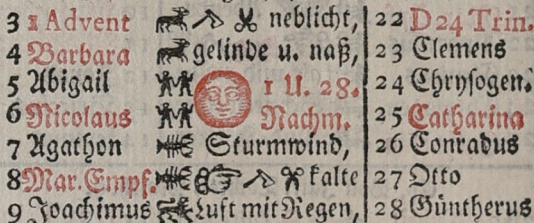 3 1 Advent neblicht, 22 D24 Trin.
4 Barbara gelinde u. naß, 23 Clemens
5 Abigail 1 U. 28. 24 Chrysogen.
6 Nicolaus Nachm. 25 Catharina
7 Agathon Sturmwind, 26 Conradus
8 Mar. Empf. kalte 27 Otto
9 Joachimus Luft mit Regen, 28 Güntherus